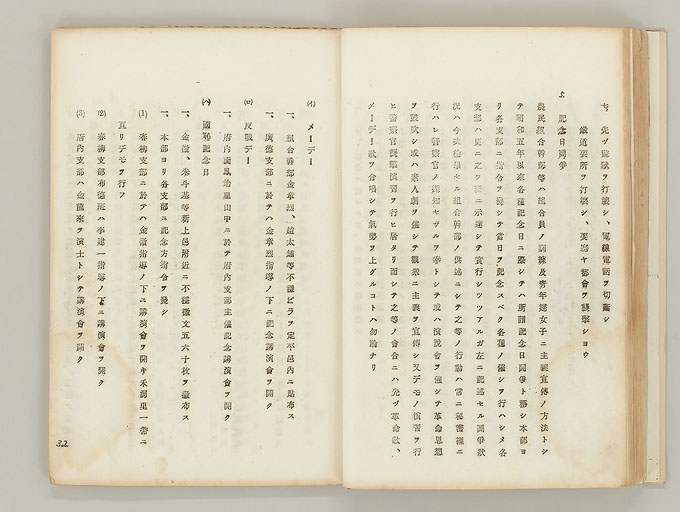 七、先ヅ電線ヲ打毀シ、電線電話ヲ切斷シ
鐵道要所ヲ打毀シ、要塞ヤ都會ヲ襲撃シヨウ
5、記念日鬪爭
農民組合幹部等ハ組合員ノ訓練及青年婦女子ニ主義宣傳ノ方法トシ
テ昭和五年以來各種記念日ニ際シテハ所謂記念日鬪爭ト稱シ本部ヨ
リ各支部ニ指令ヲ發シテ當日ヲ記念スベク各種ノ催シヲ行ハシメ各
支部ハ更ニ之ヲ班ニ示達シテ實行シツツアルガ左ニ記述セル鬪爭狀
況ハ今次檢擧セル組合幹部ノ供述ニシテ之等ノ行動ハ常ニ秘密裡ニ
行ハレ警察官ノ探知セザルヲ幸トシテ或ハ演說會ヲ催シテ革命思想
ヲ鼓吹シ或ハ素人劇ヲ催シテ觀衆ニ主義ヲ宣傳シ又デモノ演習ヲ行
ヒ警察官襲撃演習ヲ行ヒ居タリ而シテ之等ノ會合ニハ先ヅ革命歌、
メーデー歌ヲ合唱シテ氣勢ヲ上グルコトハ勿論ナリ
(イ) メーデー
一、組合幹部金章烈、趙太鎭等不穩ビラヲ定平邑內ニ貼布ス
一、廣德支部ニ於テハ金章烈指導ノ下ニ記念講演會ヲ開ク
(ロ) 反戰デー
一、府內面風治里山中ニ於テ府內支部主催記念講演會ヲ開ク
(ハ) 國恥記念日
一、金龍、朱斗基等新上邑附近ニ不穩檄文五六十枚ヲ撒布ス
一、本部ヨリ各支部ニ記念方指令ヲ發シ
(1) 春柳支部ニ於テハ金龍指導ノ下ニ講演會ヲ開キ禾洞里一帶ニ
亘リデモヲ行フ
(2) 春柳支部布德班ハ李建一指導ノ下ニ講演會ヲ開ク
(3) 府內支部ハ金龍來ヲ演士トシテ講演會ヲ開ク
32